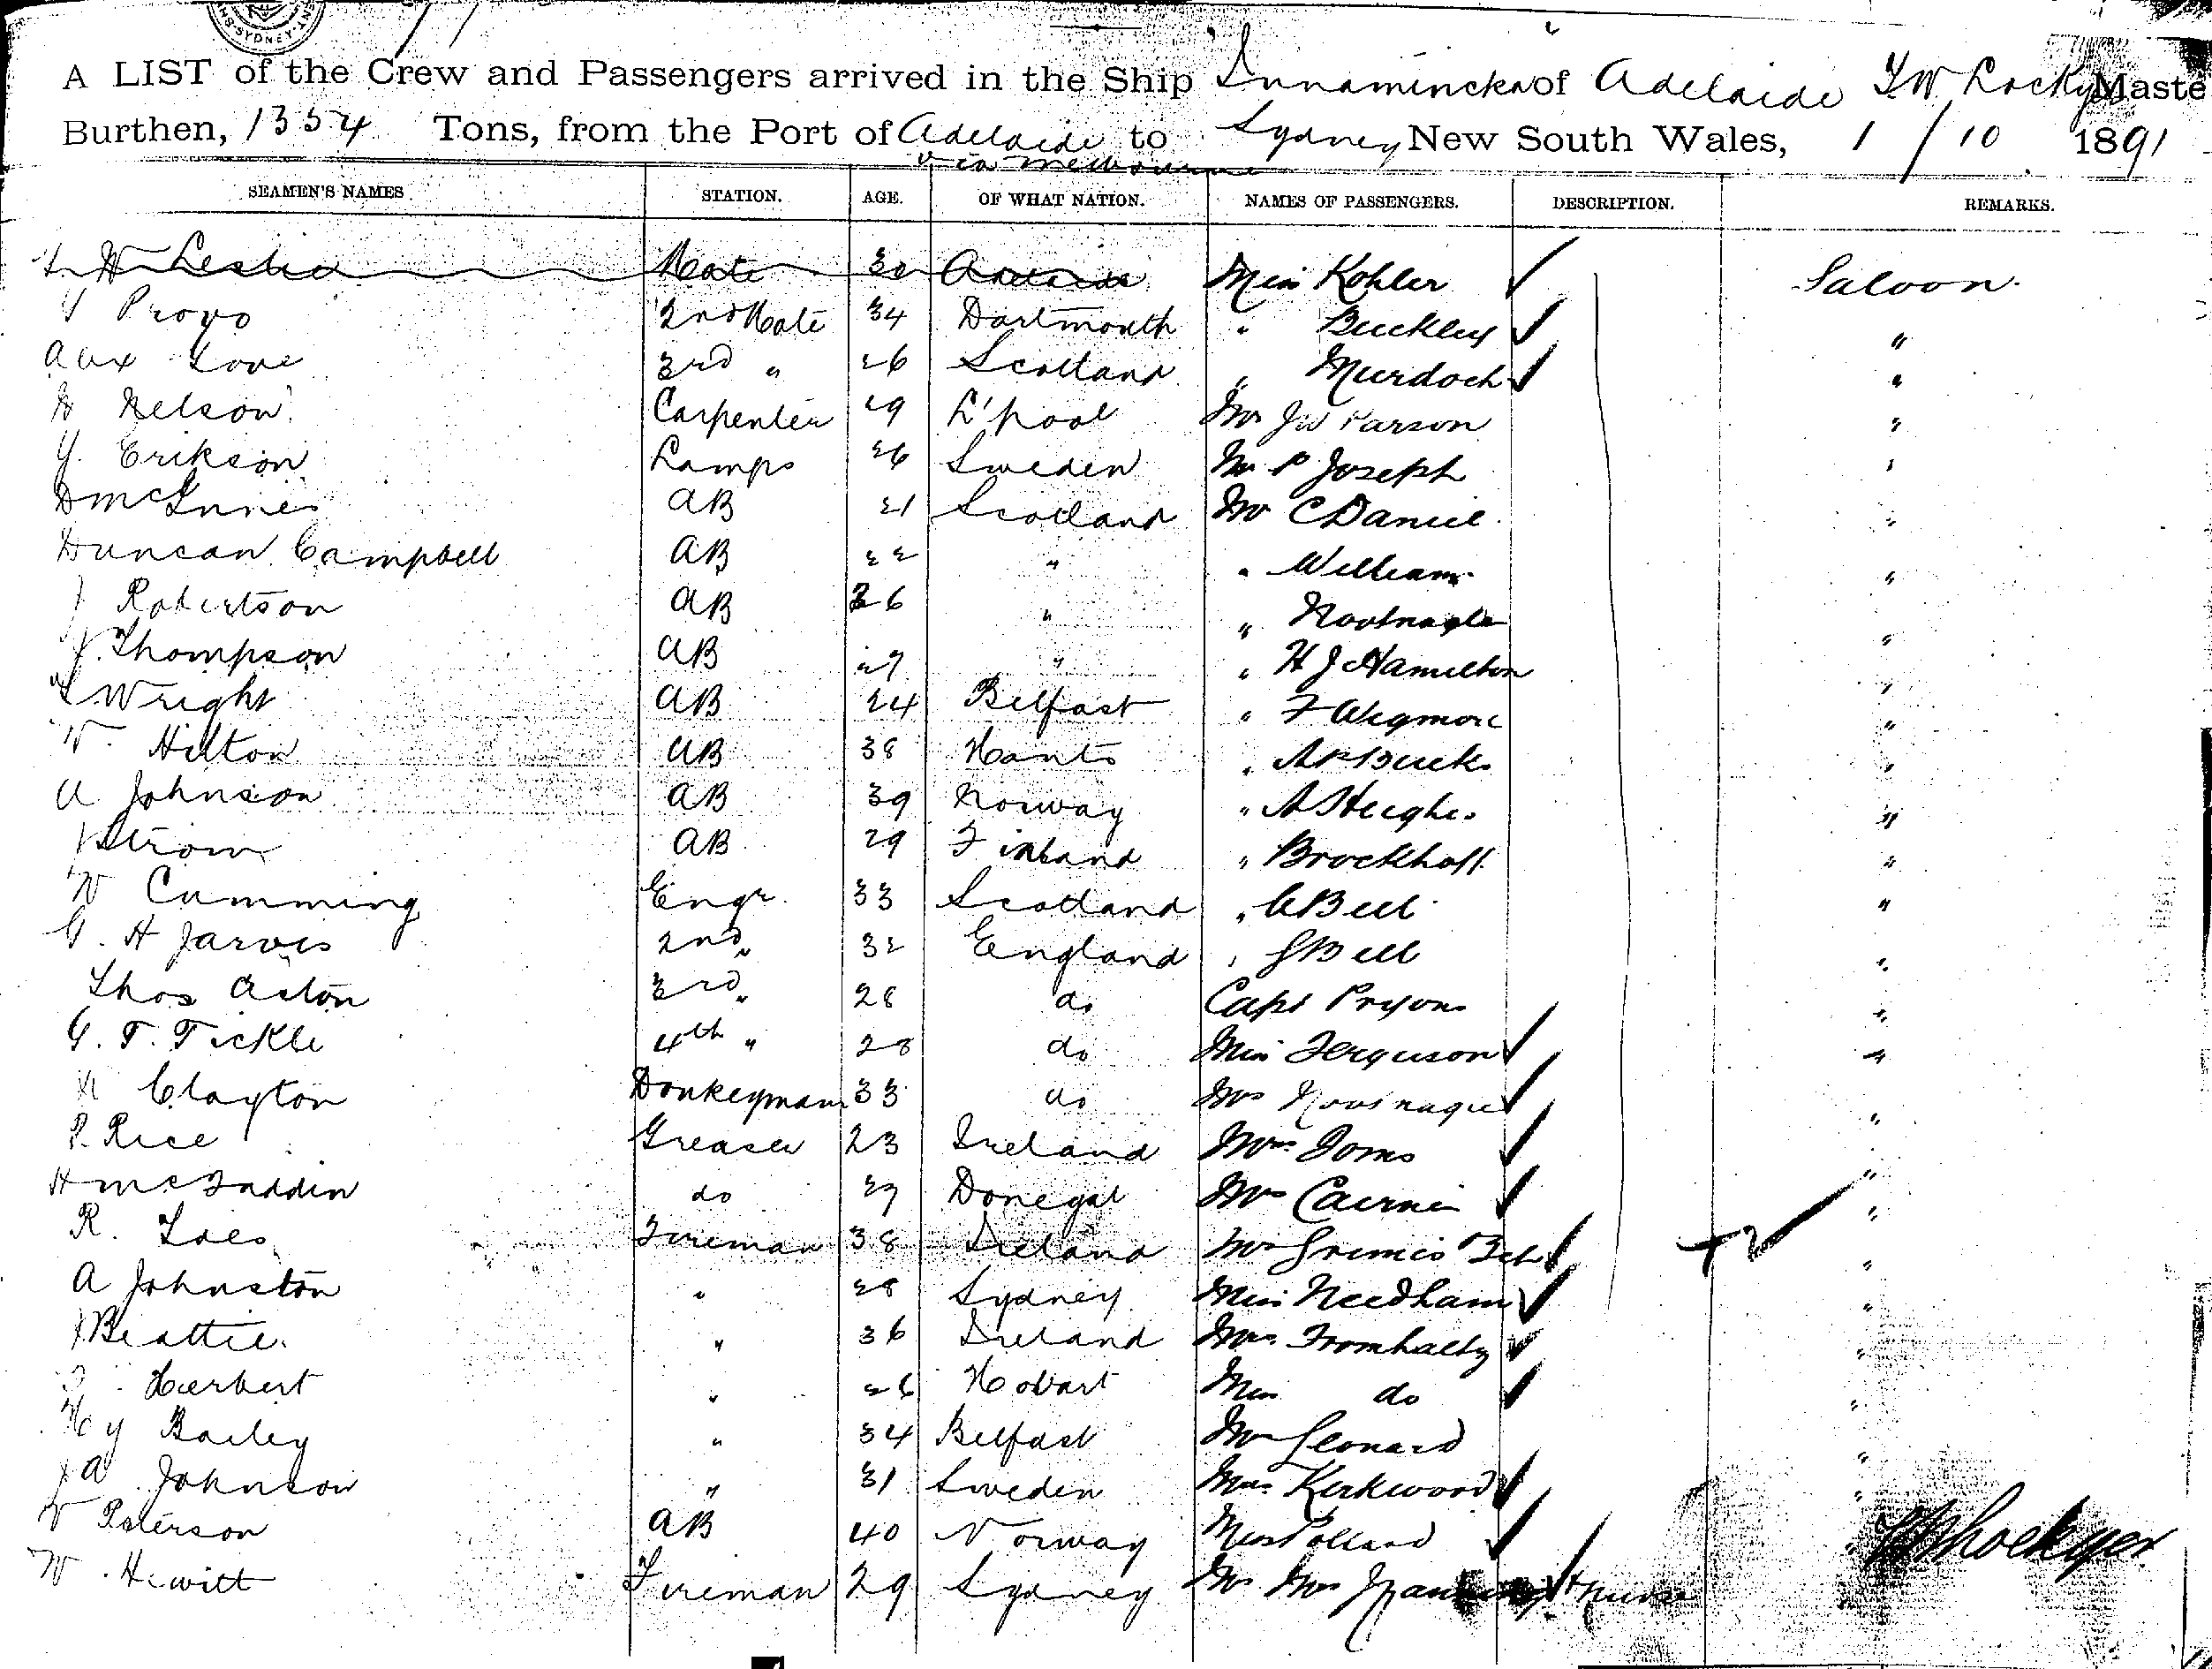 SYDNEY
A LIST of the Crew and Passengers arrived in the Ship Innamincka of Adelaide Maste
Burthen, 1354 Tons, from the Port of Adelaide to Sydney New South Wales, 1/10 1891
via Melbourne
SEAMEN'S NAMES STATION. AGE. OF WHAT NATION. NAMES OF PASSENGERS. DESCRIPTION. REMARKS.
Leslie Mate 30 Adelaide Miss Kohler ✓ Saloon.
Provo 2nd Mate 34 Dartmouth " Buckley ✓ "
Alex Love 3rd " 26 Scotland " Murdoch ✓ "
Nelson Carpenter 29 L'pool Mr J W Parson "
Y. Erikson Lamps 26 Sweden Mr P Joseph "
D McInnes AB 21 Scotland Mr C Daniel "
Duncan Campbell AB 22 " " Williams "
J Robertson AB 26 " " "
J. Thompson AB 27 " " H J Hamilton "
Wright AB 24 Belfast " F Wigmore "
W. Hilton AB 38 Hants " "
A Johnson AB 39 Norway " A Hughes "
Strom AB 29 Finland " Brockhoff "
W Cumming Engr. 33 Scotland " Bell "
G. H Jarvis 2nd " 32 England " Bell "
Thos Aston 3rd " 28 do Capt Pryor "
G. T. Tickle 4th " 28 do Miss Ferguson ✓ "
Clayton Donkeyman 33 do Mrs ✓ "
P. Rice Greaser 23 Ireland Mrs ✓ "
H McFaddin do 27 Donegal Mrs ✓ "
R. Fireman 38 Ireland Mrs ✓ + 2 ✓ "
A Johnston " 28 Sydney Miss Needham ✓ "
J Beattie " 36 Ireland Mrs ✓ "
Herbert " 26 Hobart Miss do ✓ "
Hy Bailey " 34 Belfast Mr Leonard "
A Johnson " 31 Sweden Mrs Kirkwood ✓ "
Peterson AB 40 Norway Miss Pollard ✓ "
W. Hewitt Fireman 29 Sydney Mr Mrs ✓ + nurse